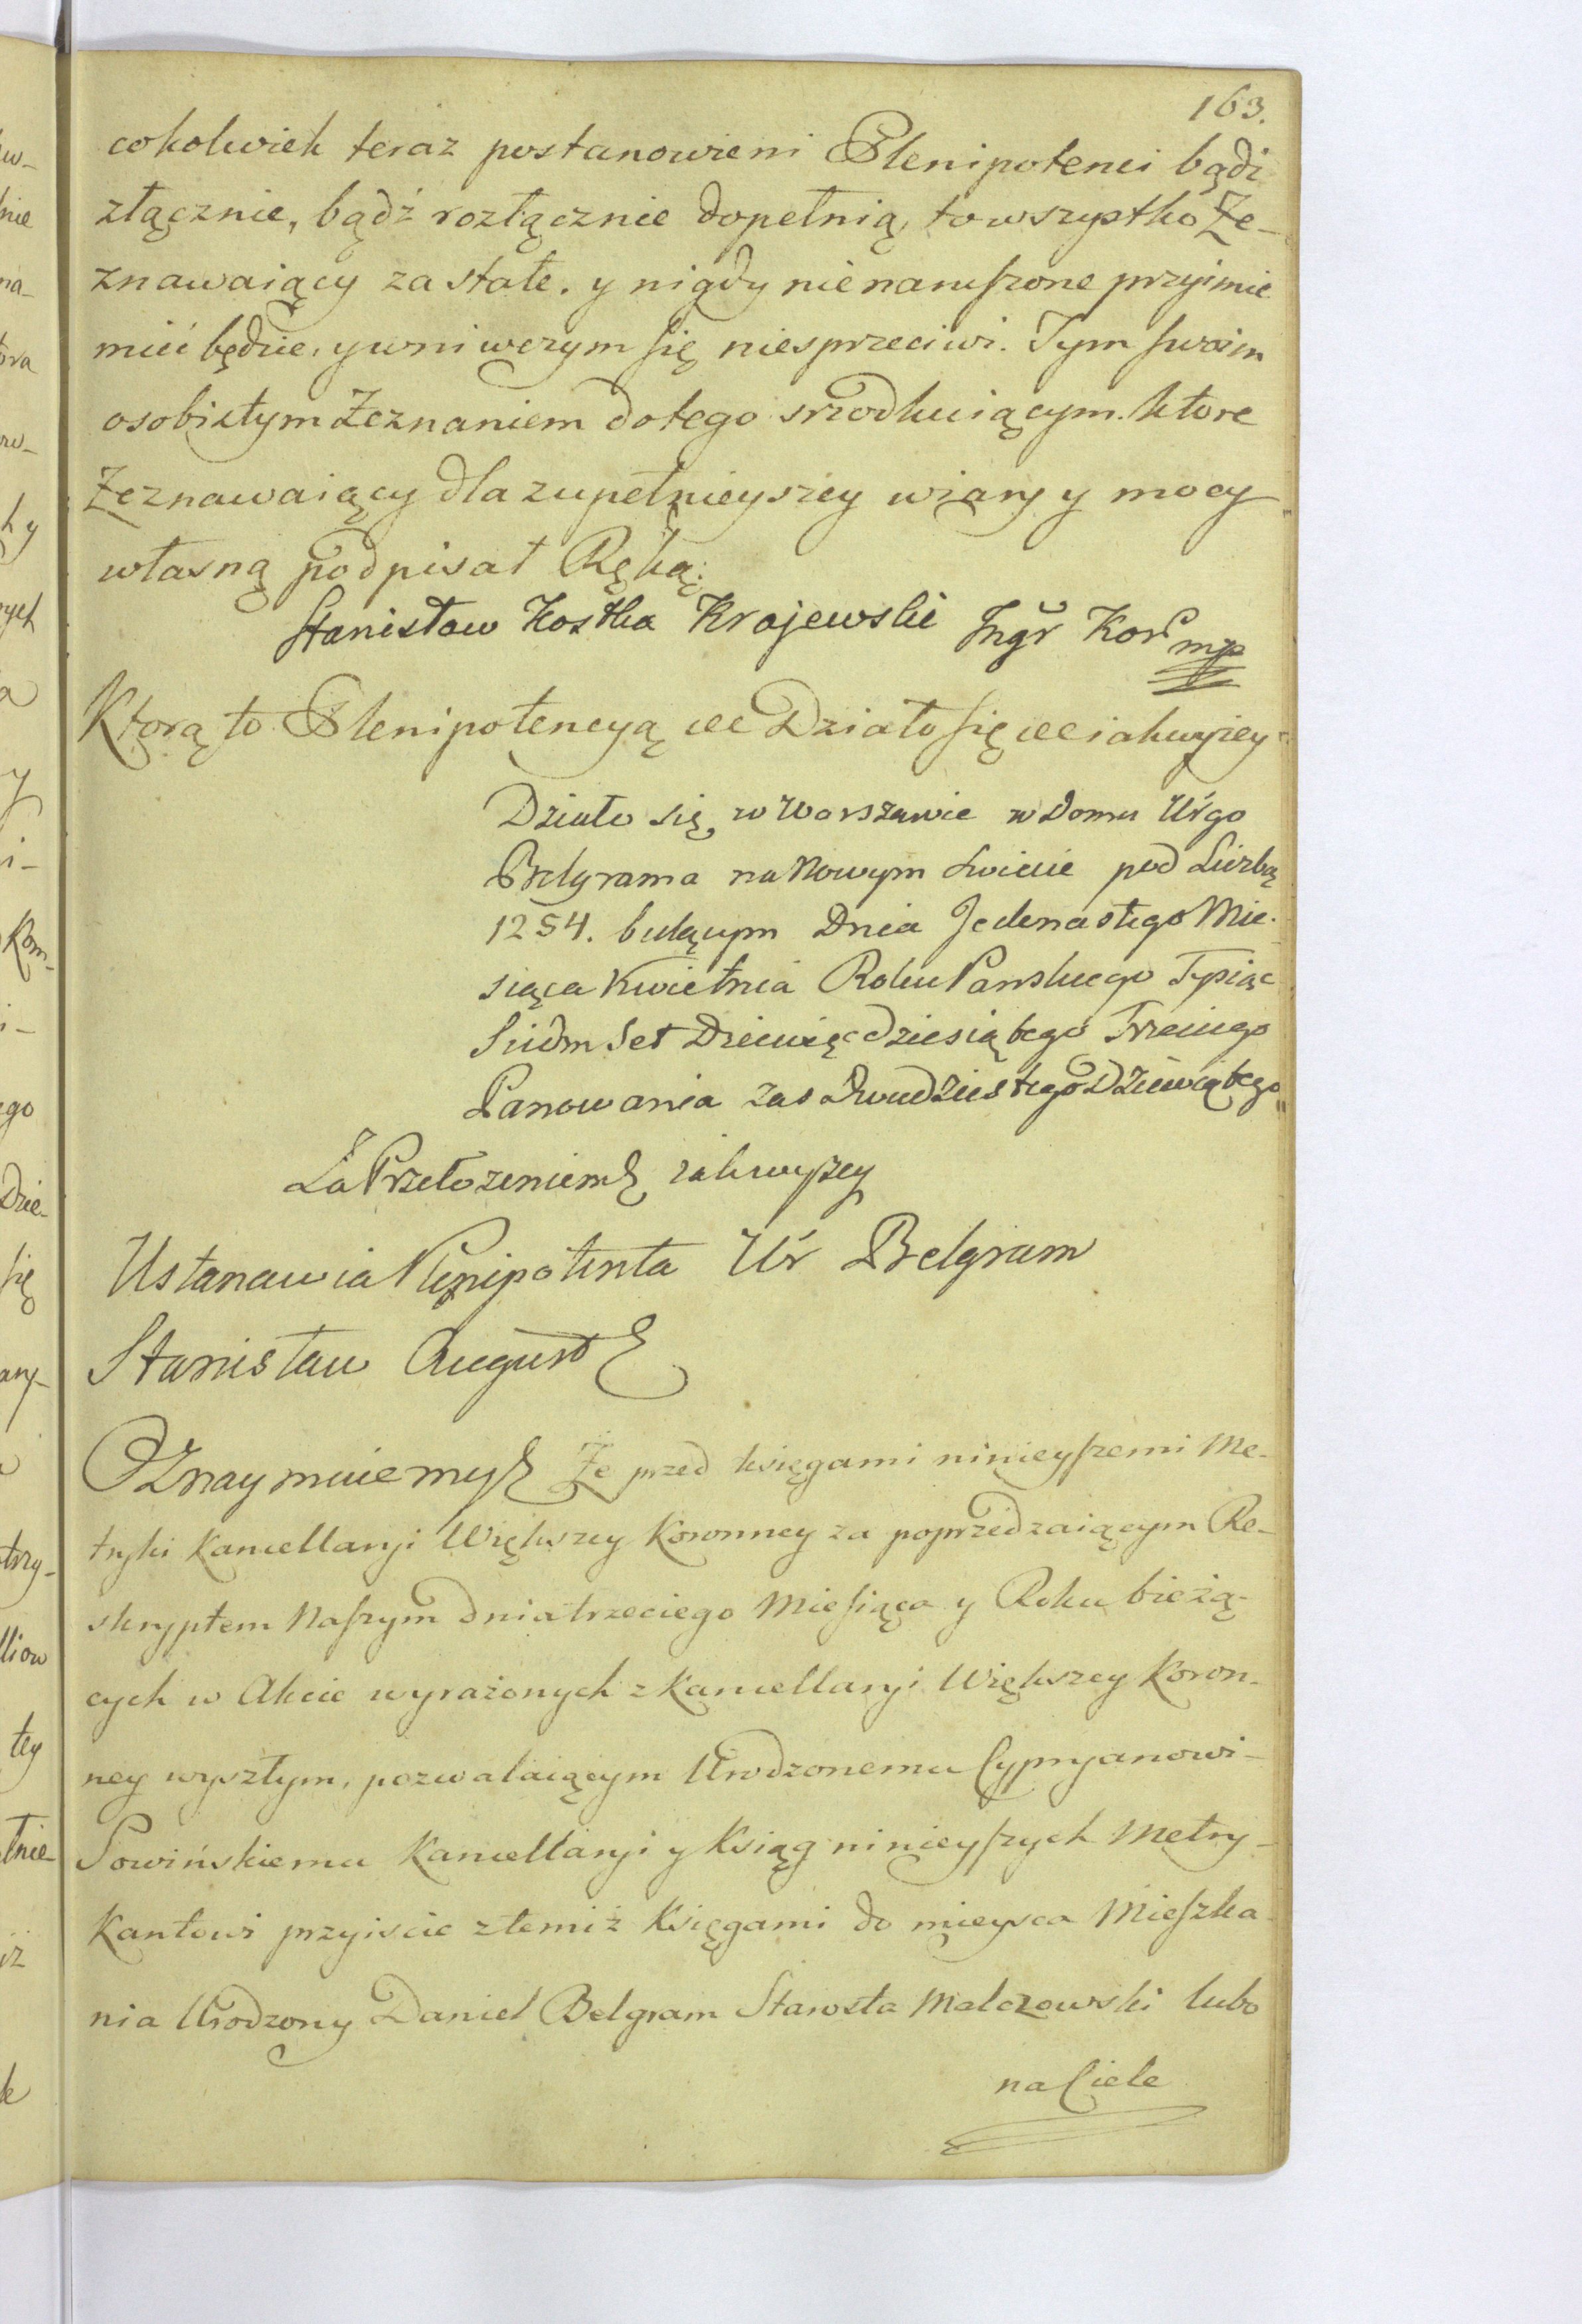 163.
cokolwiek teraz postanowieni Plenipotenci bądź
złącznie, bądź rozłącznie dopełnią, to wszystko Ze-
znawaiący za stałe. y nigdy nie naruszone przyimie
mieć będzie, y w niwczym się niesprzeciwi. Tym swoim
osobistym Zeznaniem do tego srzodkuiącym. ktore
Zeznawaiący dla zupełnieyszey wiary y mocy
własną podpisał Ręką:
Stanisław Kostka Krajewski Ingr Kor mp
Ktorą to Plenipotencyą etc Działo się etc iak wyżey
Działo się w Warszawie w Domu Ur̃go
Belgrama na Nowym Swiecie pod Liczbą
1254. będącym Dnia Jedenastego Mie-
siąca Kwietnia Roku Panskiego Tysiąc
Siedm Set Dziewięcdziesiątego Trzeciego
Panowania zas Dwudziestego Dziewiątego
Za Przełożeniem etc iak wyszey
Ustanawia Plenipotenta Ur̃ Belgram
Stanisław August etc
Oznaymuiemy etc Że przed księgami ninieyszemi Me-
tryki Kancellaryi Większey Koronney za poprzedzaiącym Re-
skryptem Naszym dnia trzeciego Miesiąca y Roku bieżą-
cych w Akcie wyrażonych z Kancellaryi Większey Koron-
ney wyszłym, pozwalaiącym Urodzonemu Cypryanowi
Sowińskiemu Kancellaryi y Ksiąg ninieyszych Metry-
kantowi przyiscie z temiż Księgami do mieysca Mieszka
nia Urodzony Daniel Belgram Starosta Malczowski lubo
na Ciele